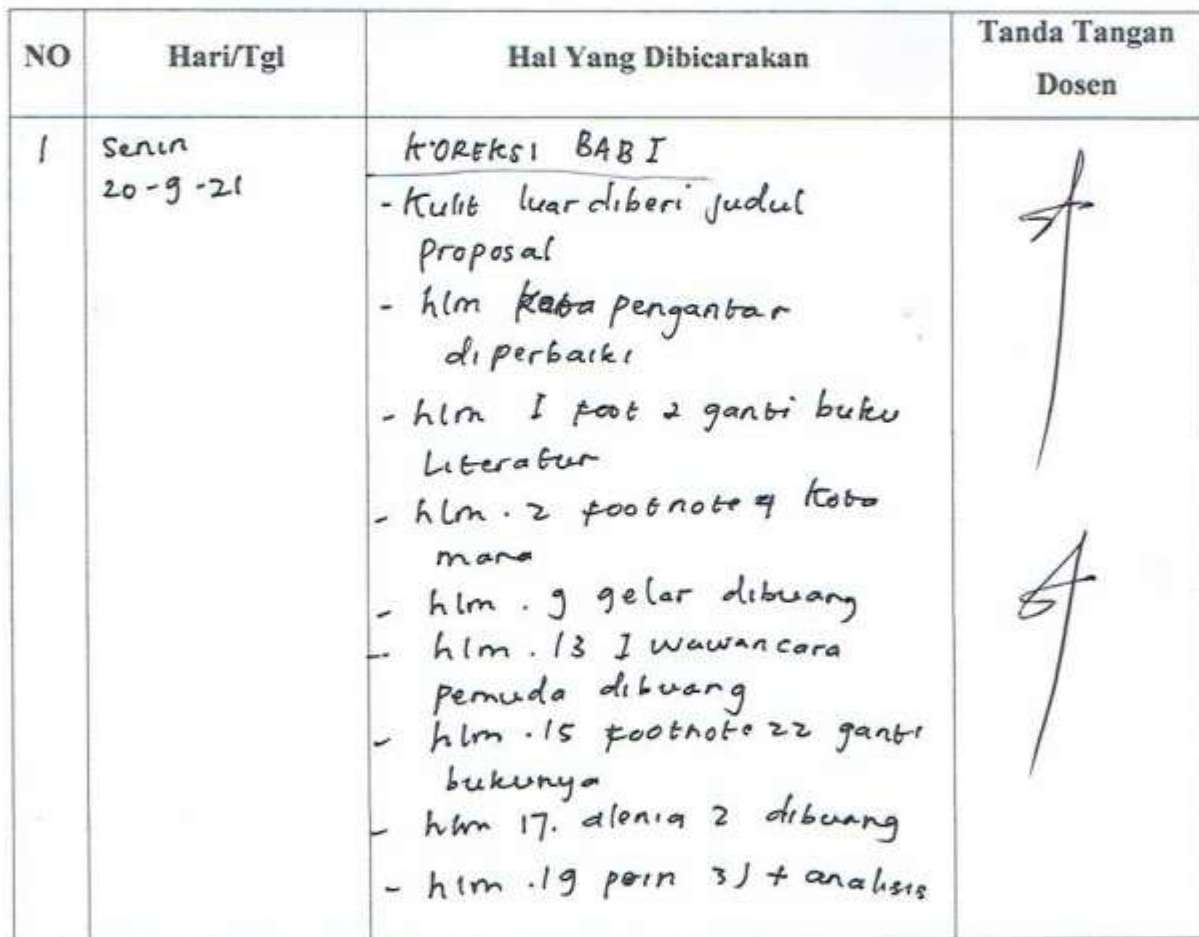 NO Hari/Tgl Hal Yang Dibicarakan Tanda Tangan Dosen
1 Senin KOREKSI BAB I
20-9-21
- Kulit luar diberi judul
proposal
- hlm kata pengantar
diperbaiki
- hlm I foot 2 ganti buku
Literatur
- hlm. 2 footnote 4 Kota
mana
- hlm. 9 gelar dibuang
- hlm. 13 I wawancara
pemuda dibuang
- hlm. 15 footnote 22 ganti
bukunya
- hlm 17. alenia 2 dibuang
- hlm. 19 poin 3) + analisis